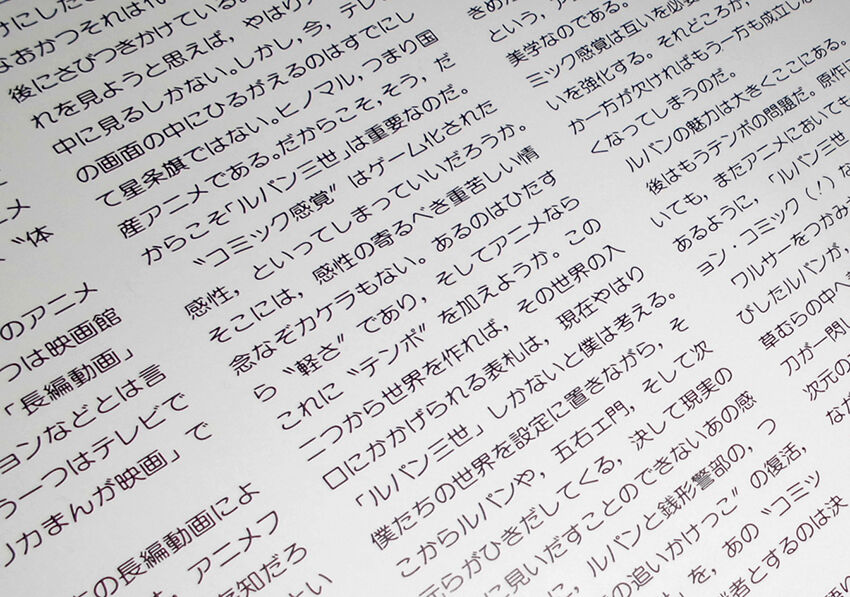 メ
〝体
のアニメ
つは映画館
「長編動画」
ョンなどとは言
う一つはテレビで
リカまんが映画」で
の長編動画によ
，アニメフ
存知だろ
けにした
なおかつそれは
後にさびつきかけている。
れを見ようと思えば，やはり
中に見るしかない。しかし，今，テレ
の画面の中にひるがえるのはすでにし
て星条旗ではない。ヒノマル，つまり国
産アニメである。だからこそ，そう，だ
からこそ「ルパン三世」は重要なのだ。
〝コミック感覚〟はゲーム化された
感性，といってしまっていいだろうか。
そこには，感性の寄るべき重苦しい情
念なぞカケラもない。あるのはひたす
ら〝軽さ〟であり，そしてアニメなら
これに〝テンポ〟を加えようか。この
二つから世界を作れば，その世界の入
口にかかげられる表札は，現在やはり
「ルパン三世」しかないと僕は考える。
僕たちの世界を設定に置きながら，そ
こからルパンや，五右エ門，そして次
元らがひきだしてくる，決して現実の
に見いだすことのできないあの感
に，ルパンと銭形警部の，つ
の追いかけっこ〟の復活，
」を，あの〝コミッ
者とするのは決
きめ
という，
美学なのである。
ミック感覚は互いを必要
いを強化する。それどころか，
か一方が欠ければもう一方も成立しな
くなってしまうのだ。
ルパンの魅力は大きくここにある。
後はもうテンポの問題だ。原作に
いても，またアニメにおいても
あるように，「ルパン三世
ョン・コミック（！）な
ワルサーをつかみ
びしたルパンが，
草むらの中へ
刀が一閃し
次元の
なが